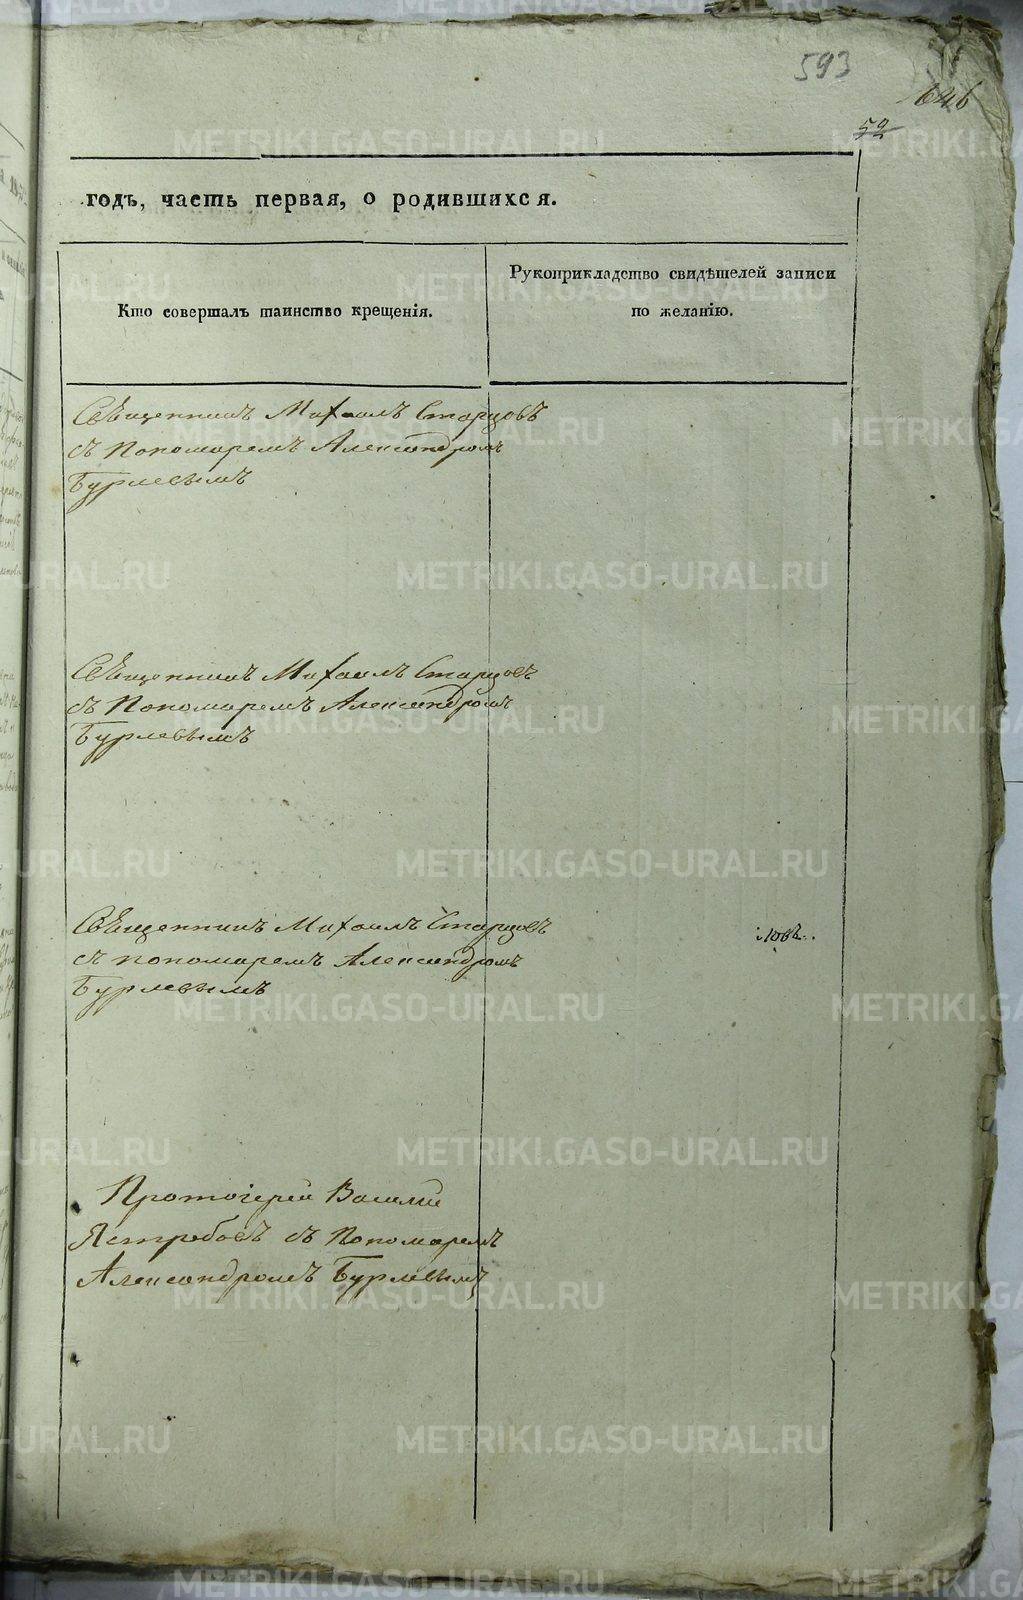 593
646
52
годъ, часть первая, о родившихся.
Кто совершалъ таинство крещенія.
Рукоприкладство свидѣтелей записи
по желанію.
Священникъ Михаилъ Старцовъ
съ Пономаремъ Александромъ
Бурлевымъ
Священникъ Михаилъ Старцовъ
съ Пономаремъ Александромъ
Бурлевымъ
Священникъ Михаилъ Старцовъ
съ пономаремъ Александромъ
Бурлевымъ
Протоіерей Василий
Ястребовъ съ Пономаремъ
Александромъ Бурлевымъ
METRIKI.GASO-URAL.RU